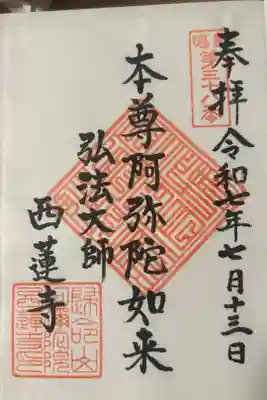 奉拝 令和七年七月十三日
本尊阿弥陀如来
弘法大師
西蓮寺